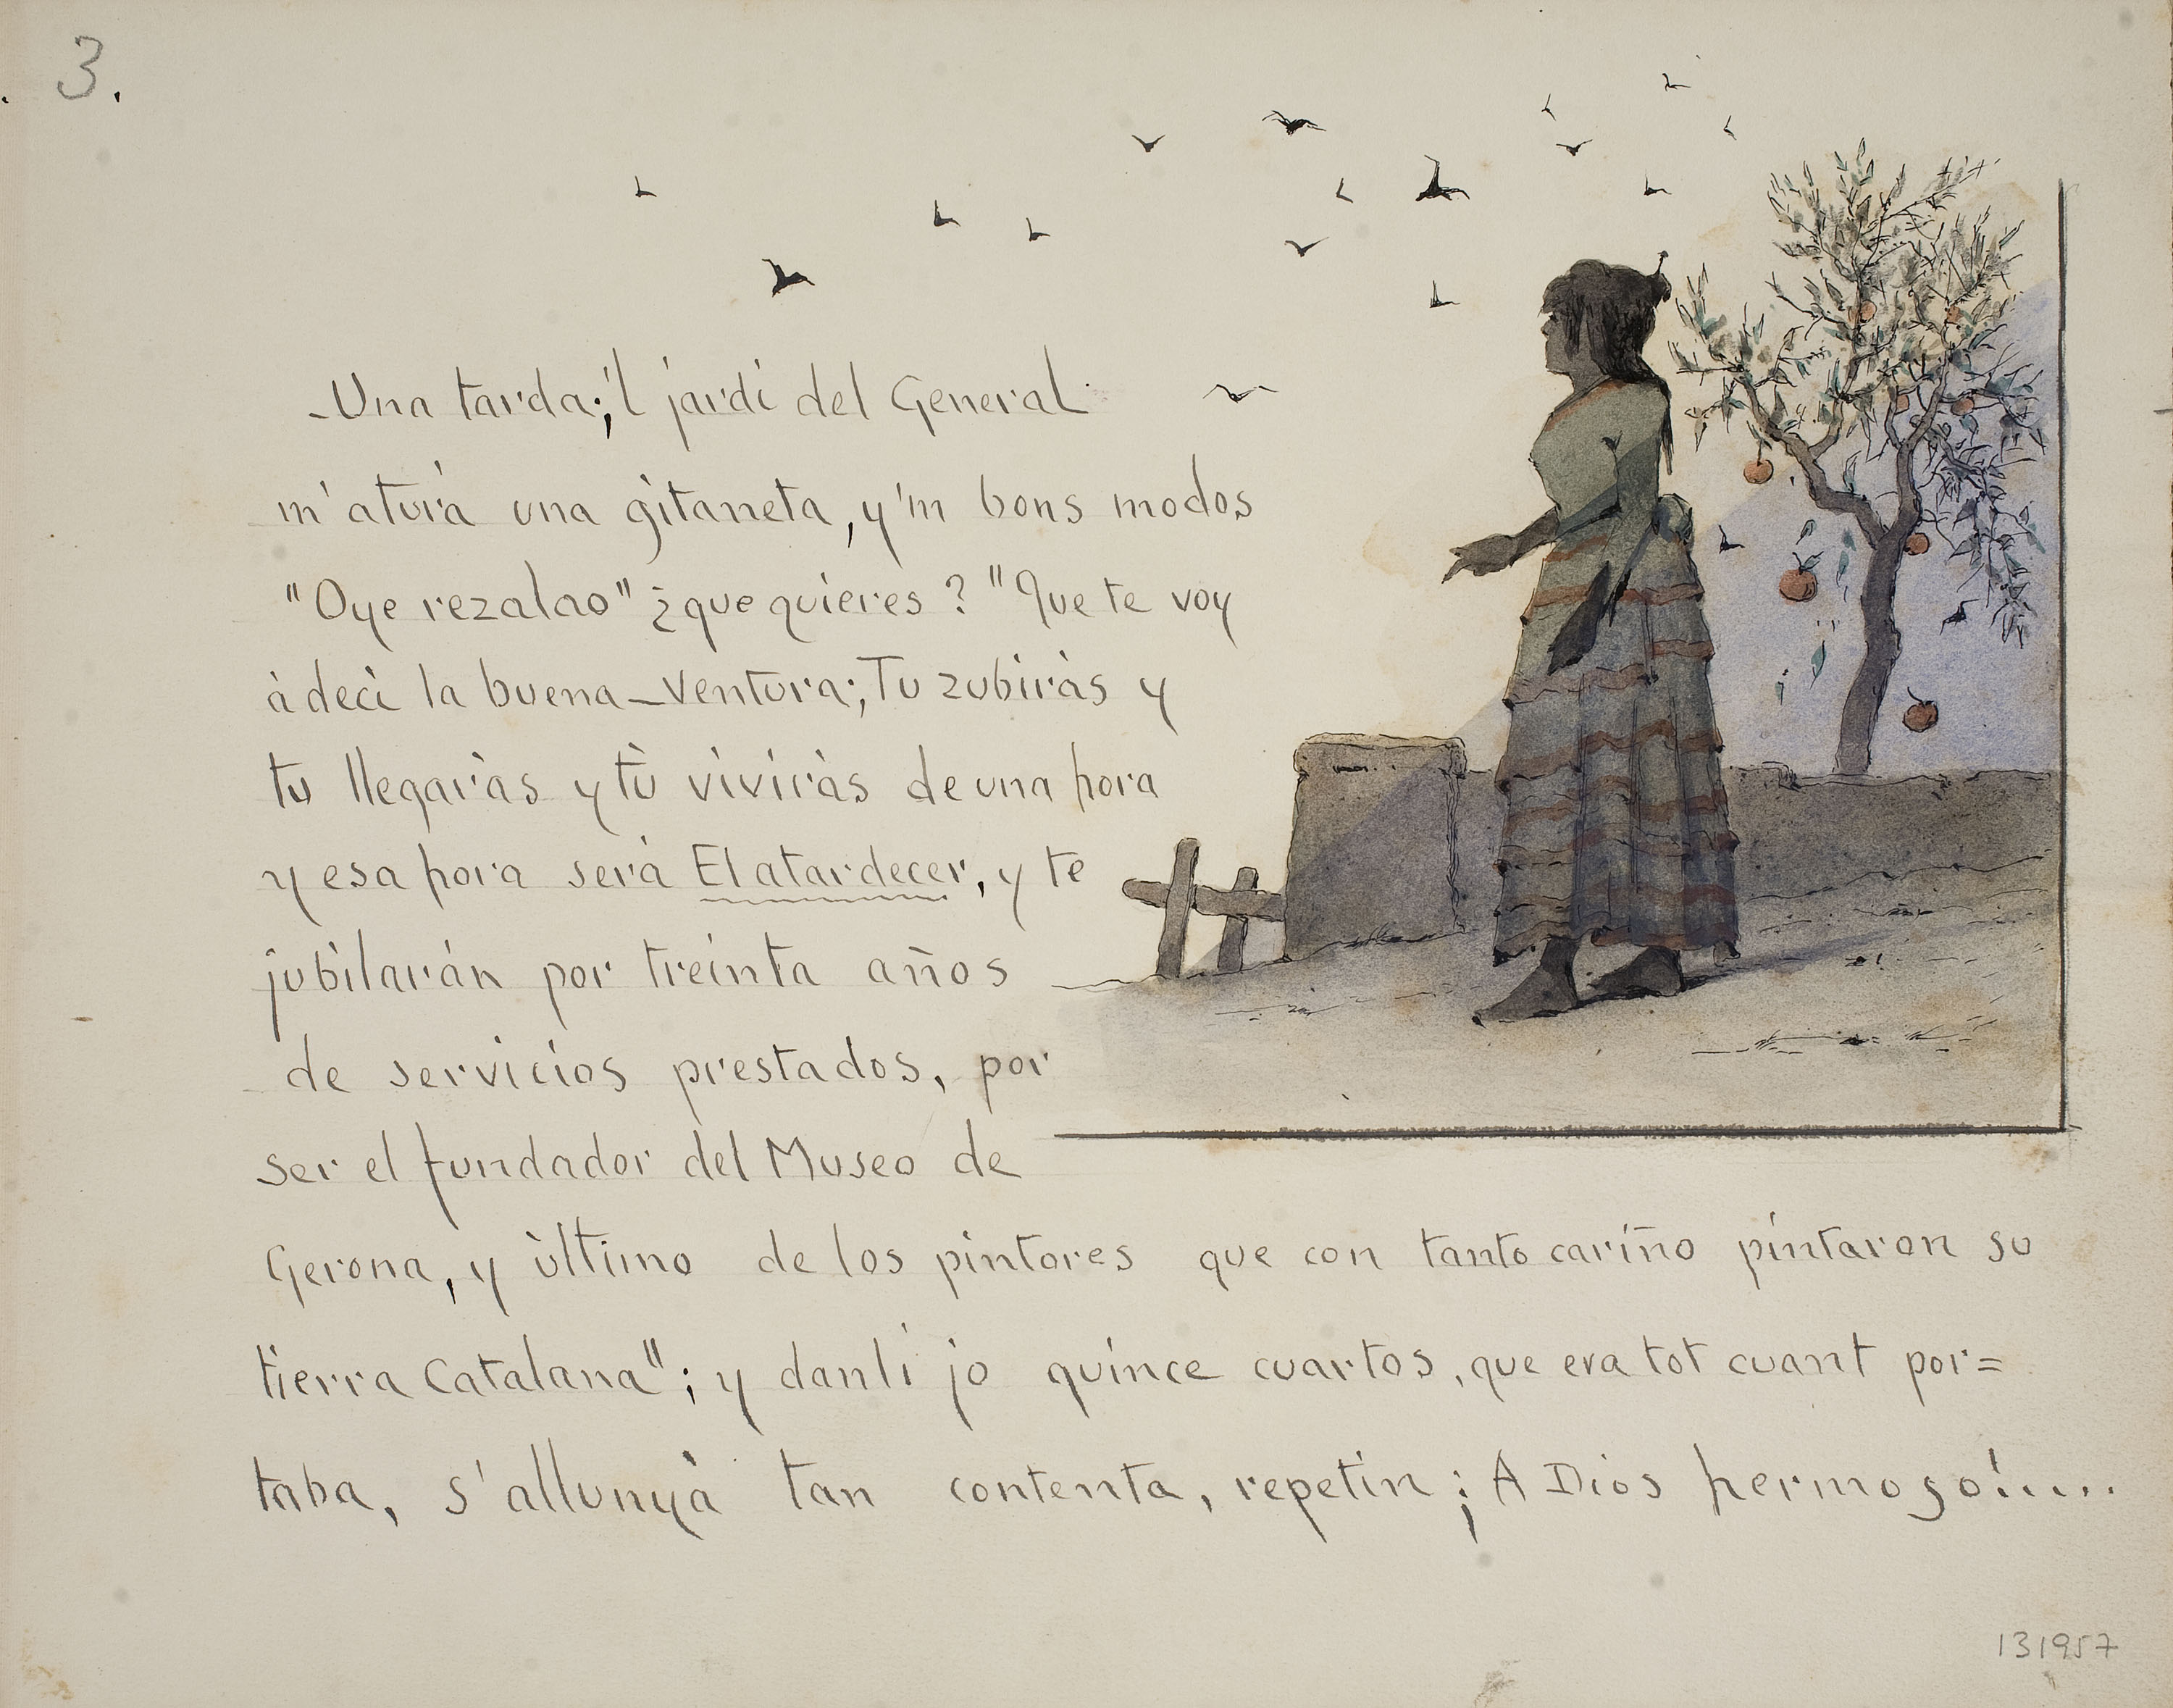 3.
-Una tarda; 'l jardi del General
m'aturà una gitaneta, y 'm bons modos
"Oye rezalao" ¿que quieres? "Que te voy
à deci la buena-ventura; Tu zubiràs y
tu llegaràs y tù viviràs de una hora
y esa hora serà El atardecer, y te
jubilarán por treinta años
de servicios prestados, por
ser el fundador del Museo de
Gerona, y ùltimo de los pintores que con tanto cariño pintaron su
tierra Catalana"; y danli jo quince cuartos, que era tot cuant por=
taba, s'allunyà tan contenta, repetin; A Dios hermoso!....
131957